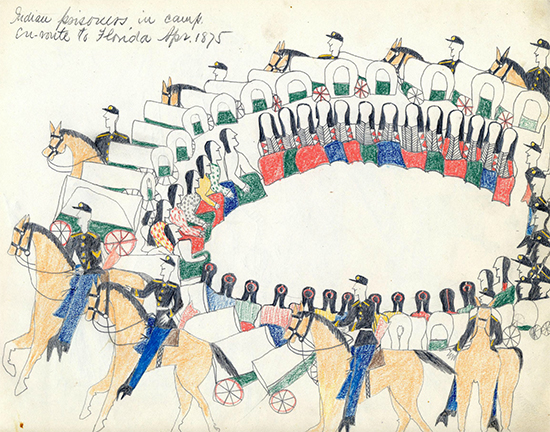 Indian prisoners in camp.
en-route to Florida Apr. 1875